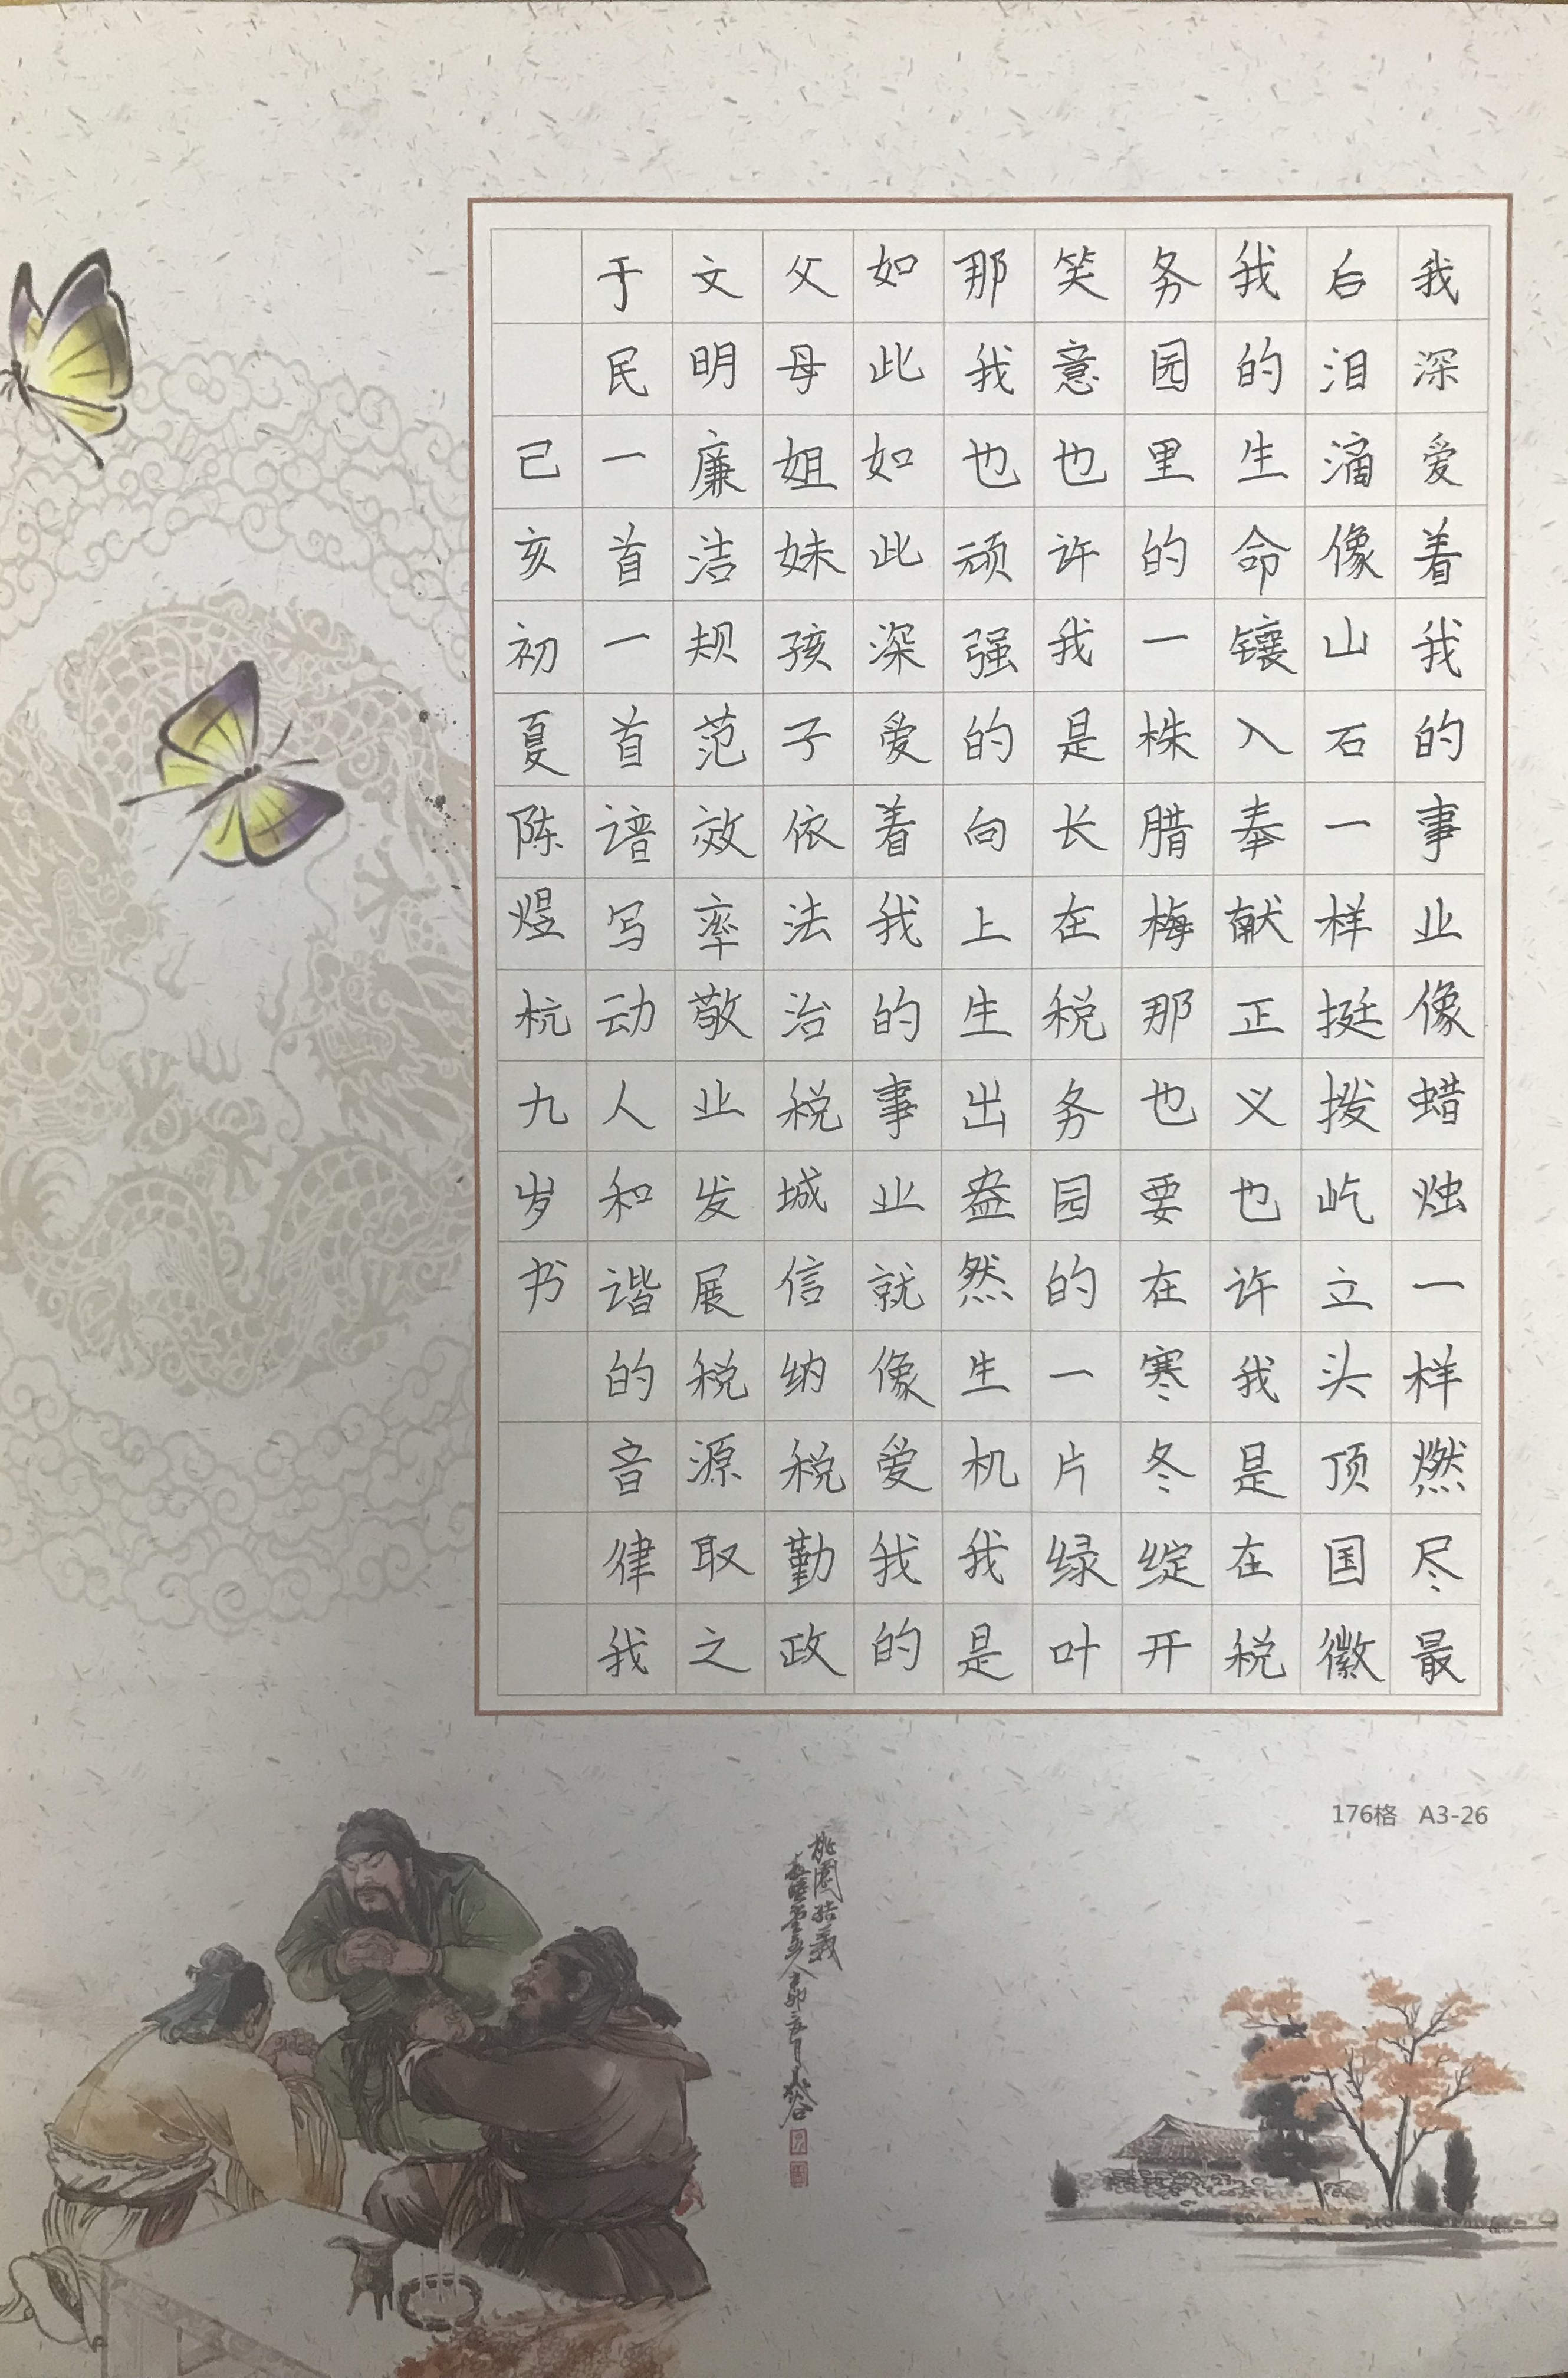 我深爱着我的事业像蜡烛一样燃尽最
后泪滴像山石一样挺拨屹立头顶国徽
我的生命镶入奉献正义也许我是在税
务园里的一株腊梅那也要在寒冬绽开
笑意也许我是长在税务园的一片绿叶
那我也顽强的向上生出盎然生机我是
如此如此深爱着我的事业就像爱我的
父母姐妹孩子依法治税城信纳税勤政
文明廉洁规范效率敬业发展税源取之
于民一首一首谱写动人和谐的音律我
己亥初夏陈煜杭九岁书
176格 A3-26
桃園结義